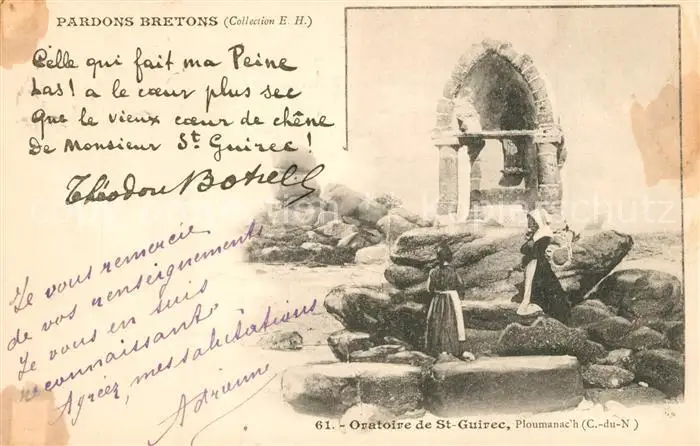 PARDONS BRETONS (Collection E. H.)
Celle qui fait ma Peine
Las! a le cœur plus sec
Que le vieux cœur de chêne
De Monsieur St Guirec!
Théodore Botrel
Je vous remercie
de vos renseignements
Je vous en suis
reconnaissant.
Agréez, mes salutations
Adrienne
61. - Oratoire de St-Guirec, Ploumanac'h (C.-du-N)